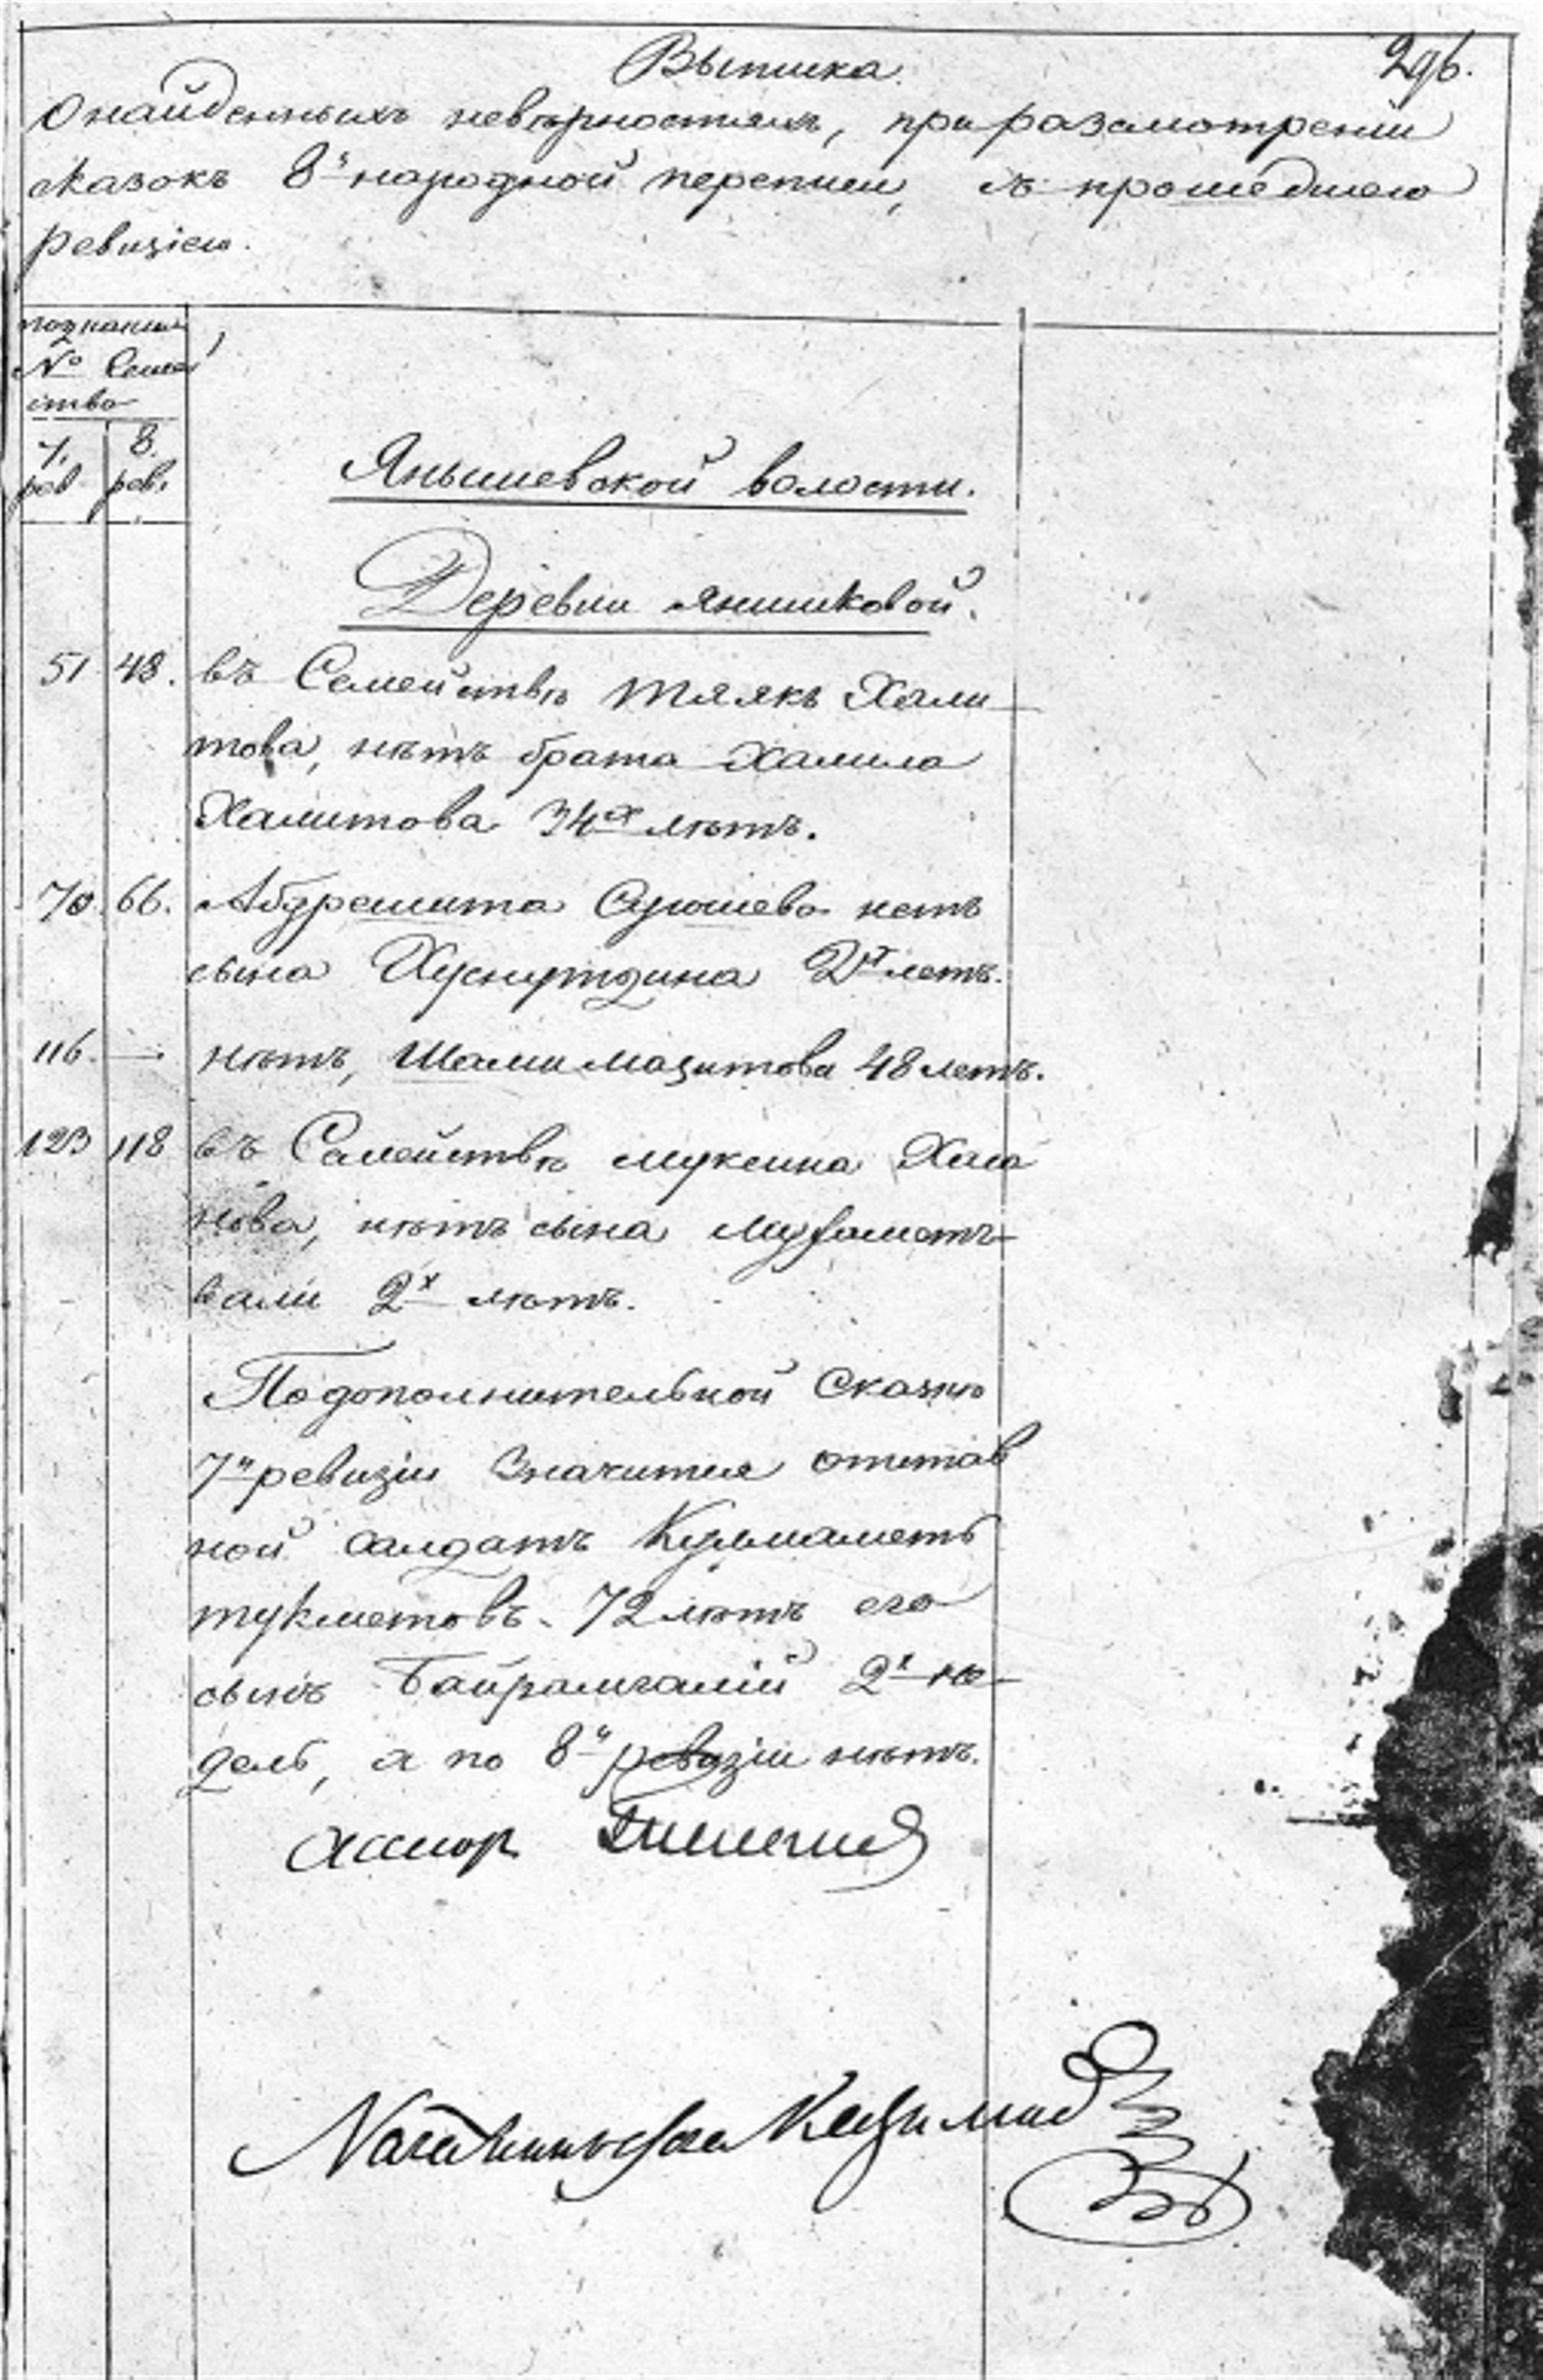 Выписка.
296.
О найденныхъ неверностяхъ, при разсмотрении
сказокъ 8й народной переписи, съ прошедшею
ревизiею.
№ Семей
ства
7. 8.
рев рев.
Янышевской волости.
Деревни Янышковой.
51 48. въ Семействѣ Тляякъ Хами
това, нѣтъ брата Хамила
Хамитова 34х лѣтъ.
70. 66. Абдрешита Суюшева нетъ
сына Хуснутдина 2х летъ.
116. — нѣтъ, Шами Мазитова 48 летъ.
123 118 въ Семействѣ Муксина Хаса
нова, нѣтъ сына Мухаметъ-
вали 2х лѣтъ.
По дополнительной Сказкѣ
7й ревизiи Значится отстав
ной салдатъ Кульмаметь
тукметовъ. 72 лѣтъ его
сынъ Байрамгалiй 2х не-
дель, а по 8й ревизiи нѣтъ.